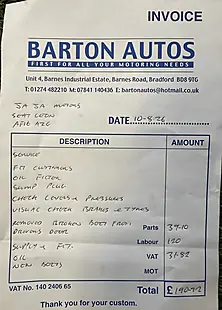 INVOICE
BARTON AUTOS
FIRST FOR ALL YOUR MOTORING NEEDS
Unit 4, Barnes Industrial Estate, Barnes Road, Bradford BD8 9TG
T: 01274 482210 M: 07841 140436 E: bartonautos@hotmail.co.uk
JA JA MOTORS
SEAT LEON
DATE 10-8-26
DESCRIPTION AMOUNT
SERVICE
FIT CUSTOMERS
OIL FILTER
SUMP PLUG
CHECK LEVELS & PRESSURES
VISUAL CHECK BRAKES & TYRES
REMOVED BROKEN BOLT FROM
Parts 39-10
Labour 120
SUPPLY & FIT.
OIL
VAT 31-82
NEW BOLTS
MOT
VAT No. 140 2406 65
Total £190-92
Thank you for your custom.